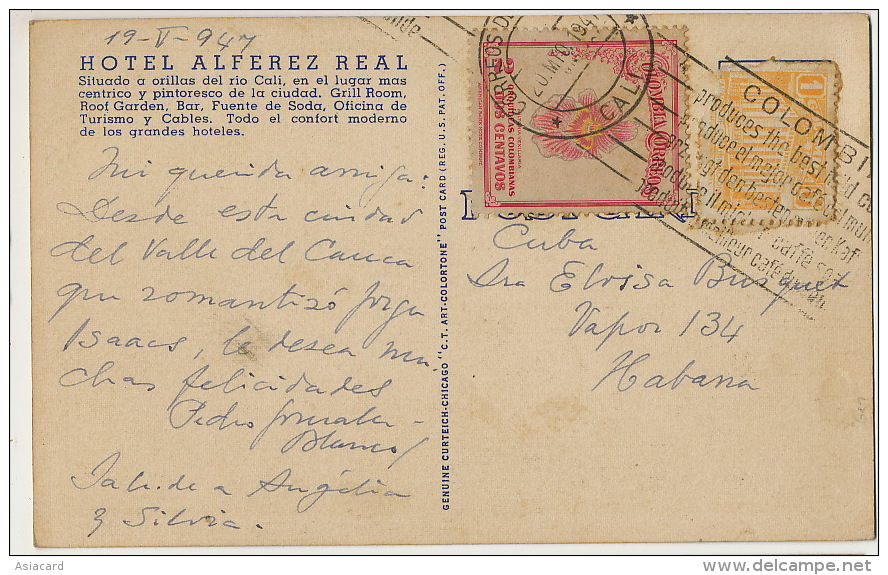 19-V-947
HOTEL ALFEREZ REAL
Situado a orillas del rio Cali, en el lugar mas
centrico y pintoresco de la ciudad. Grill Room,
Roof Garden, Bar, Fuente de Soda, Oficina de
Turismo y Cables. Todo el confort moderno
de los grandes hoteles.
Mi querida amiga:
Desde esta ciudad
del Valle del Cauca
que romantizó Jorge
Isaacs, le desea mu
chas felicidades
Pedro González-
Blanco
Salude a Angélia
y Silvia.
GENUINE CURTEICH-CHICAGO "C. T. ART-COLORTONE" POST CARD (REG. U. S. PAT. OFF.)
CORREOS D
20 MYO 194
CALI
COLOMBIA CORREOS
ORQUIDEAS COLOMBIANAS
2 DOS CENTAVOS
1
COLOMBI
produces the best mild co
produce el mejor café
produce il mi caffè
Cuba
Dra Eloisa Burguet
Vapor 134
Habana
Asiacard
delcampe.net